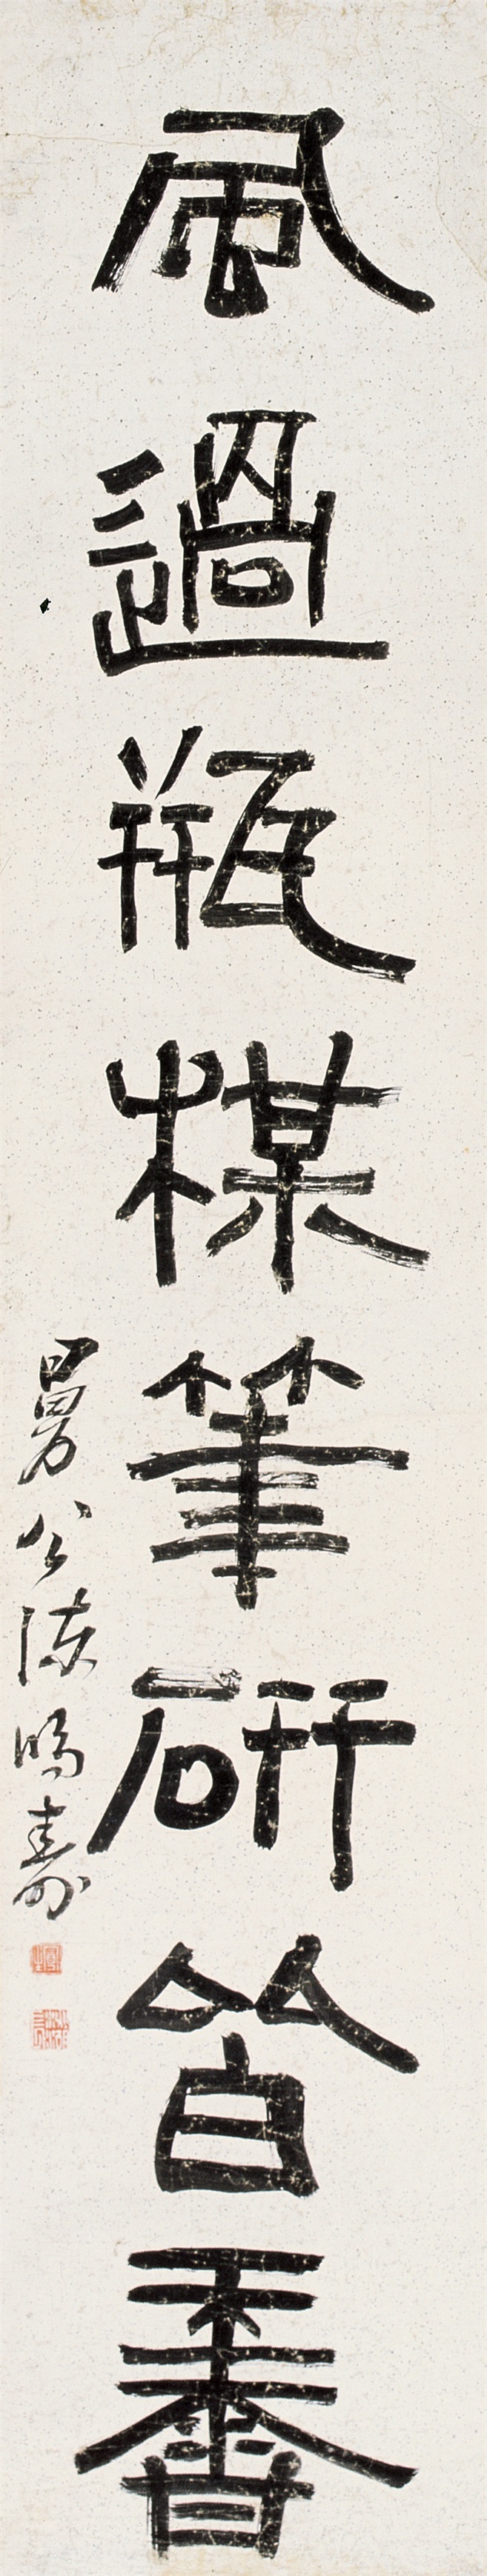 風過瓶楳筆研皆香
曼公陳鴻壽